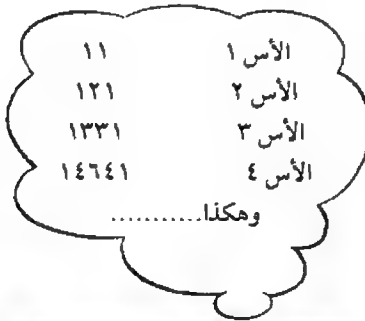 الأس ١ ١١
الأس ٢ ١٢١
الأس ٣ ١٣٣١
الأس ٤ ١٤٦٤١
وهكذا...........